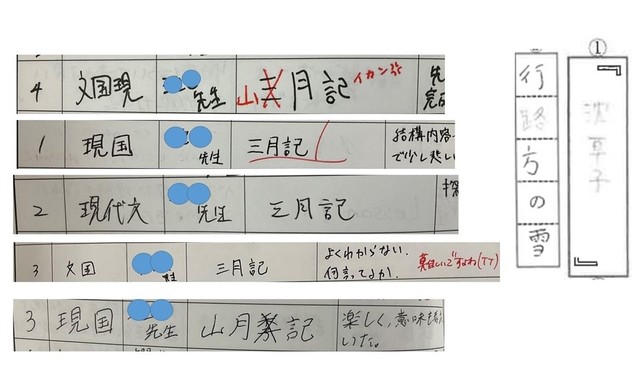 4 文国現 先生 山月記 イカンぞ
1 現国 先生 三月記 結構内容
で少し悲しい
2 現代文 先生 三月記
3 文国 三月記 よくわからない。
何言ってるか。 難しいですよね(TT)
3 現国 先生 山月記 楽しく、意味も
いた。
①
『
枕草子
』
行路方の雪